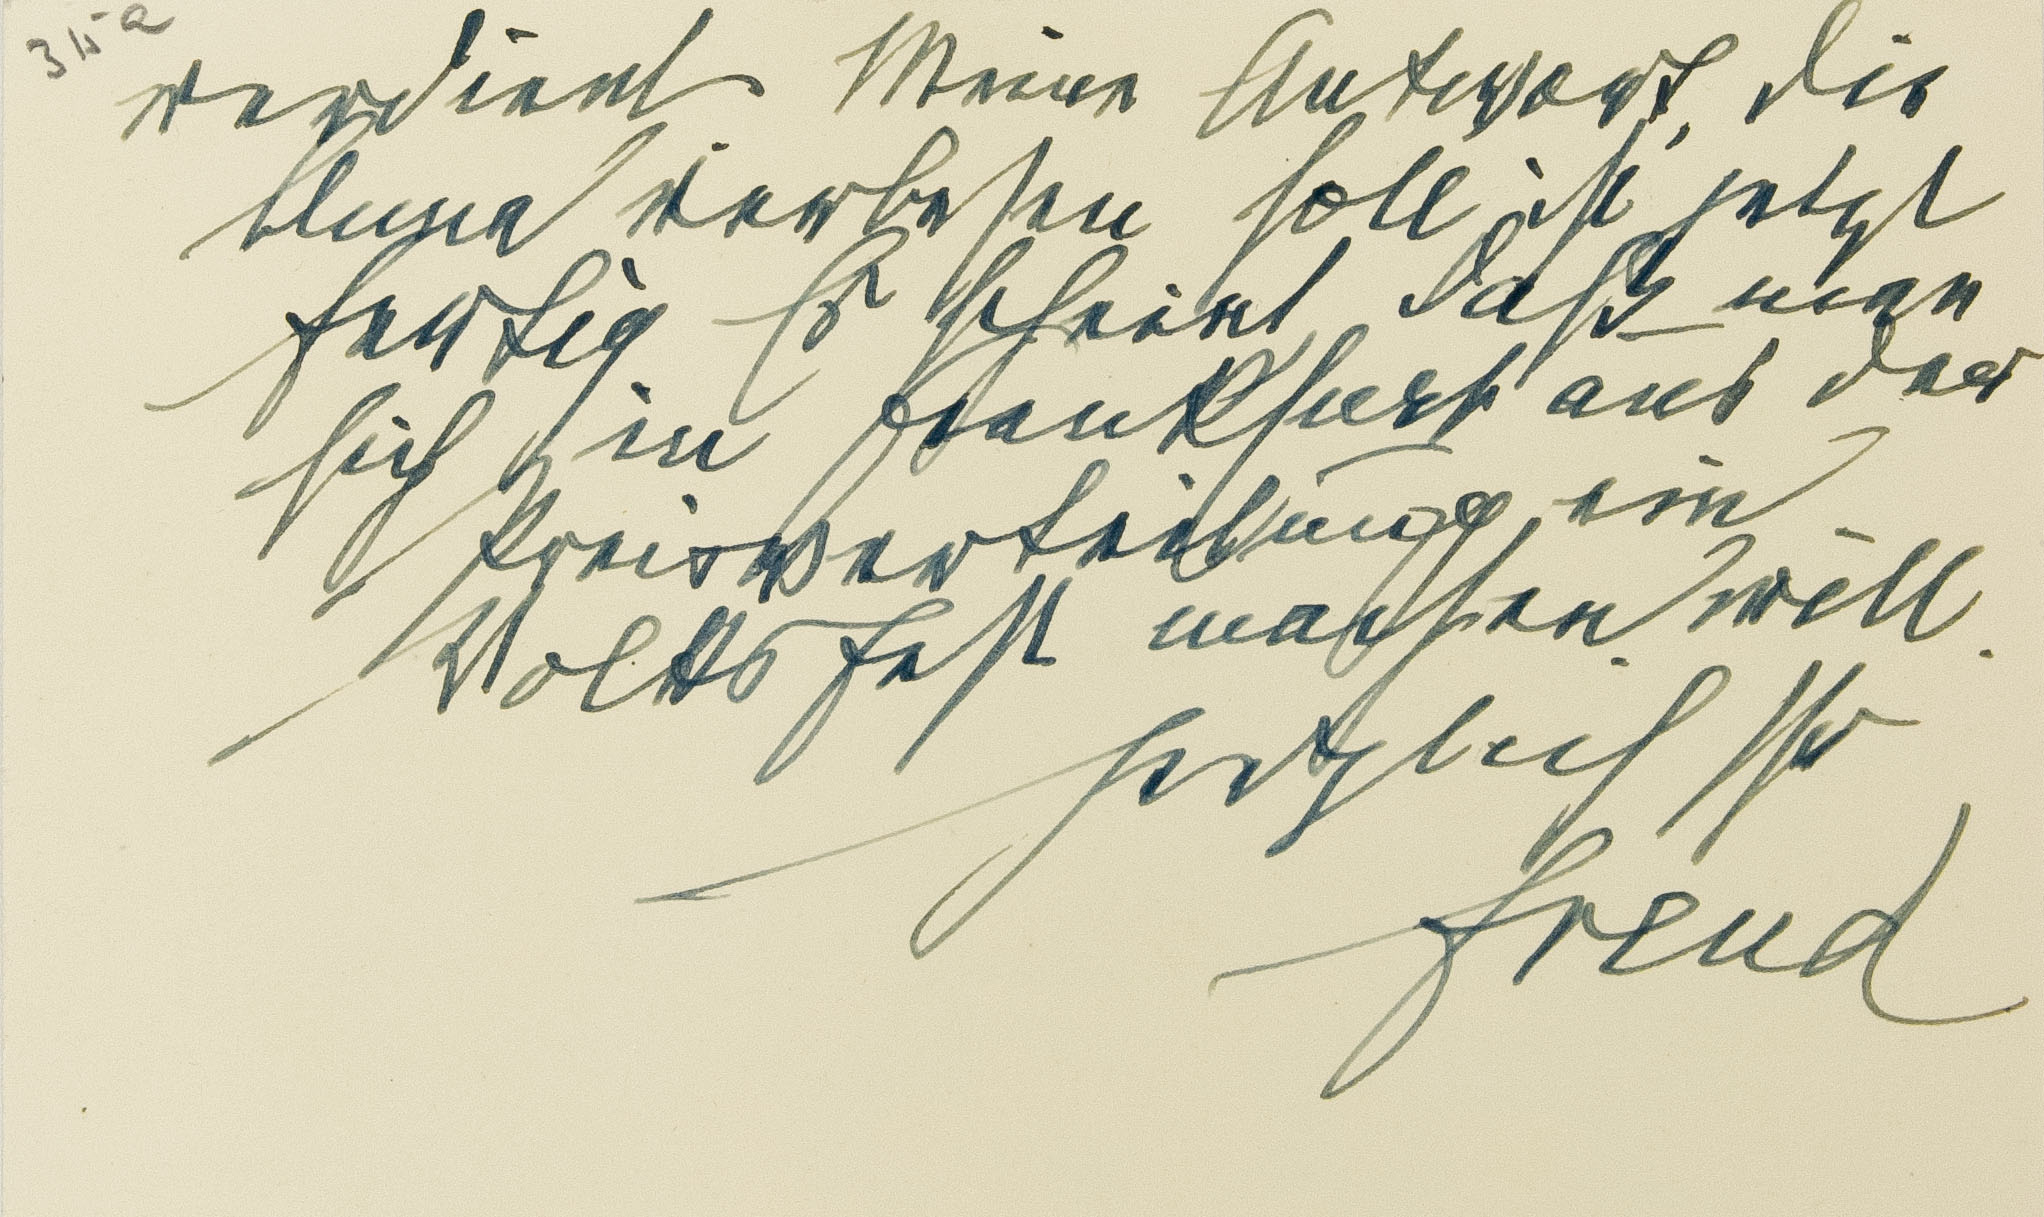 315a
verdient. Meine Antwort, die
Anna verlesen soll, ist jetzt
fertig. Es scheint, daß man
sich in Frankfurt aus der
Preisverteilung ein
Volksfest machen will.
Herzlich Ihr
Freud